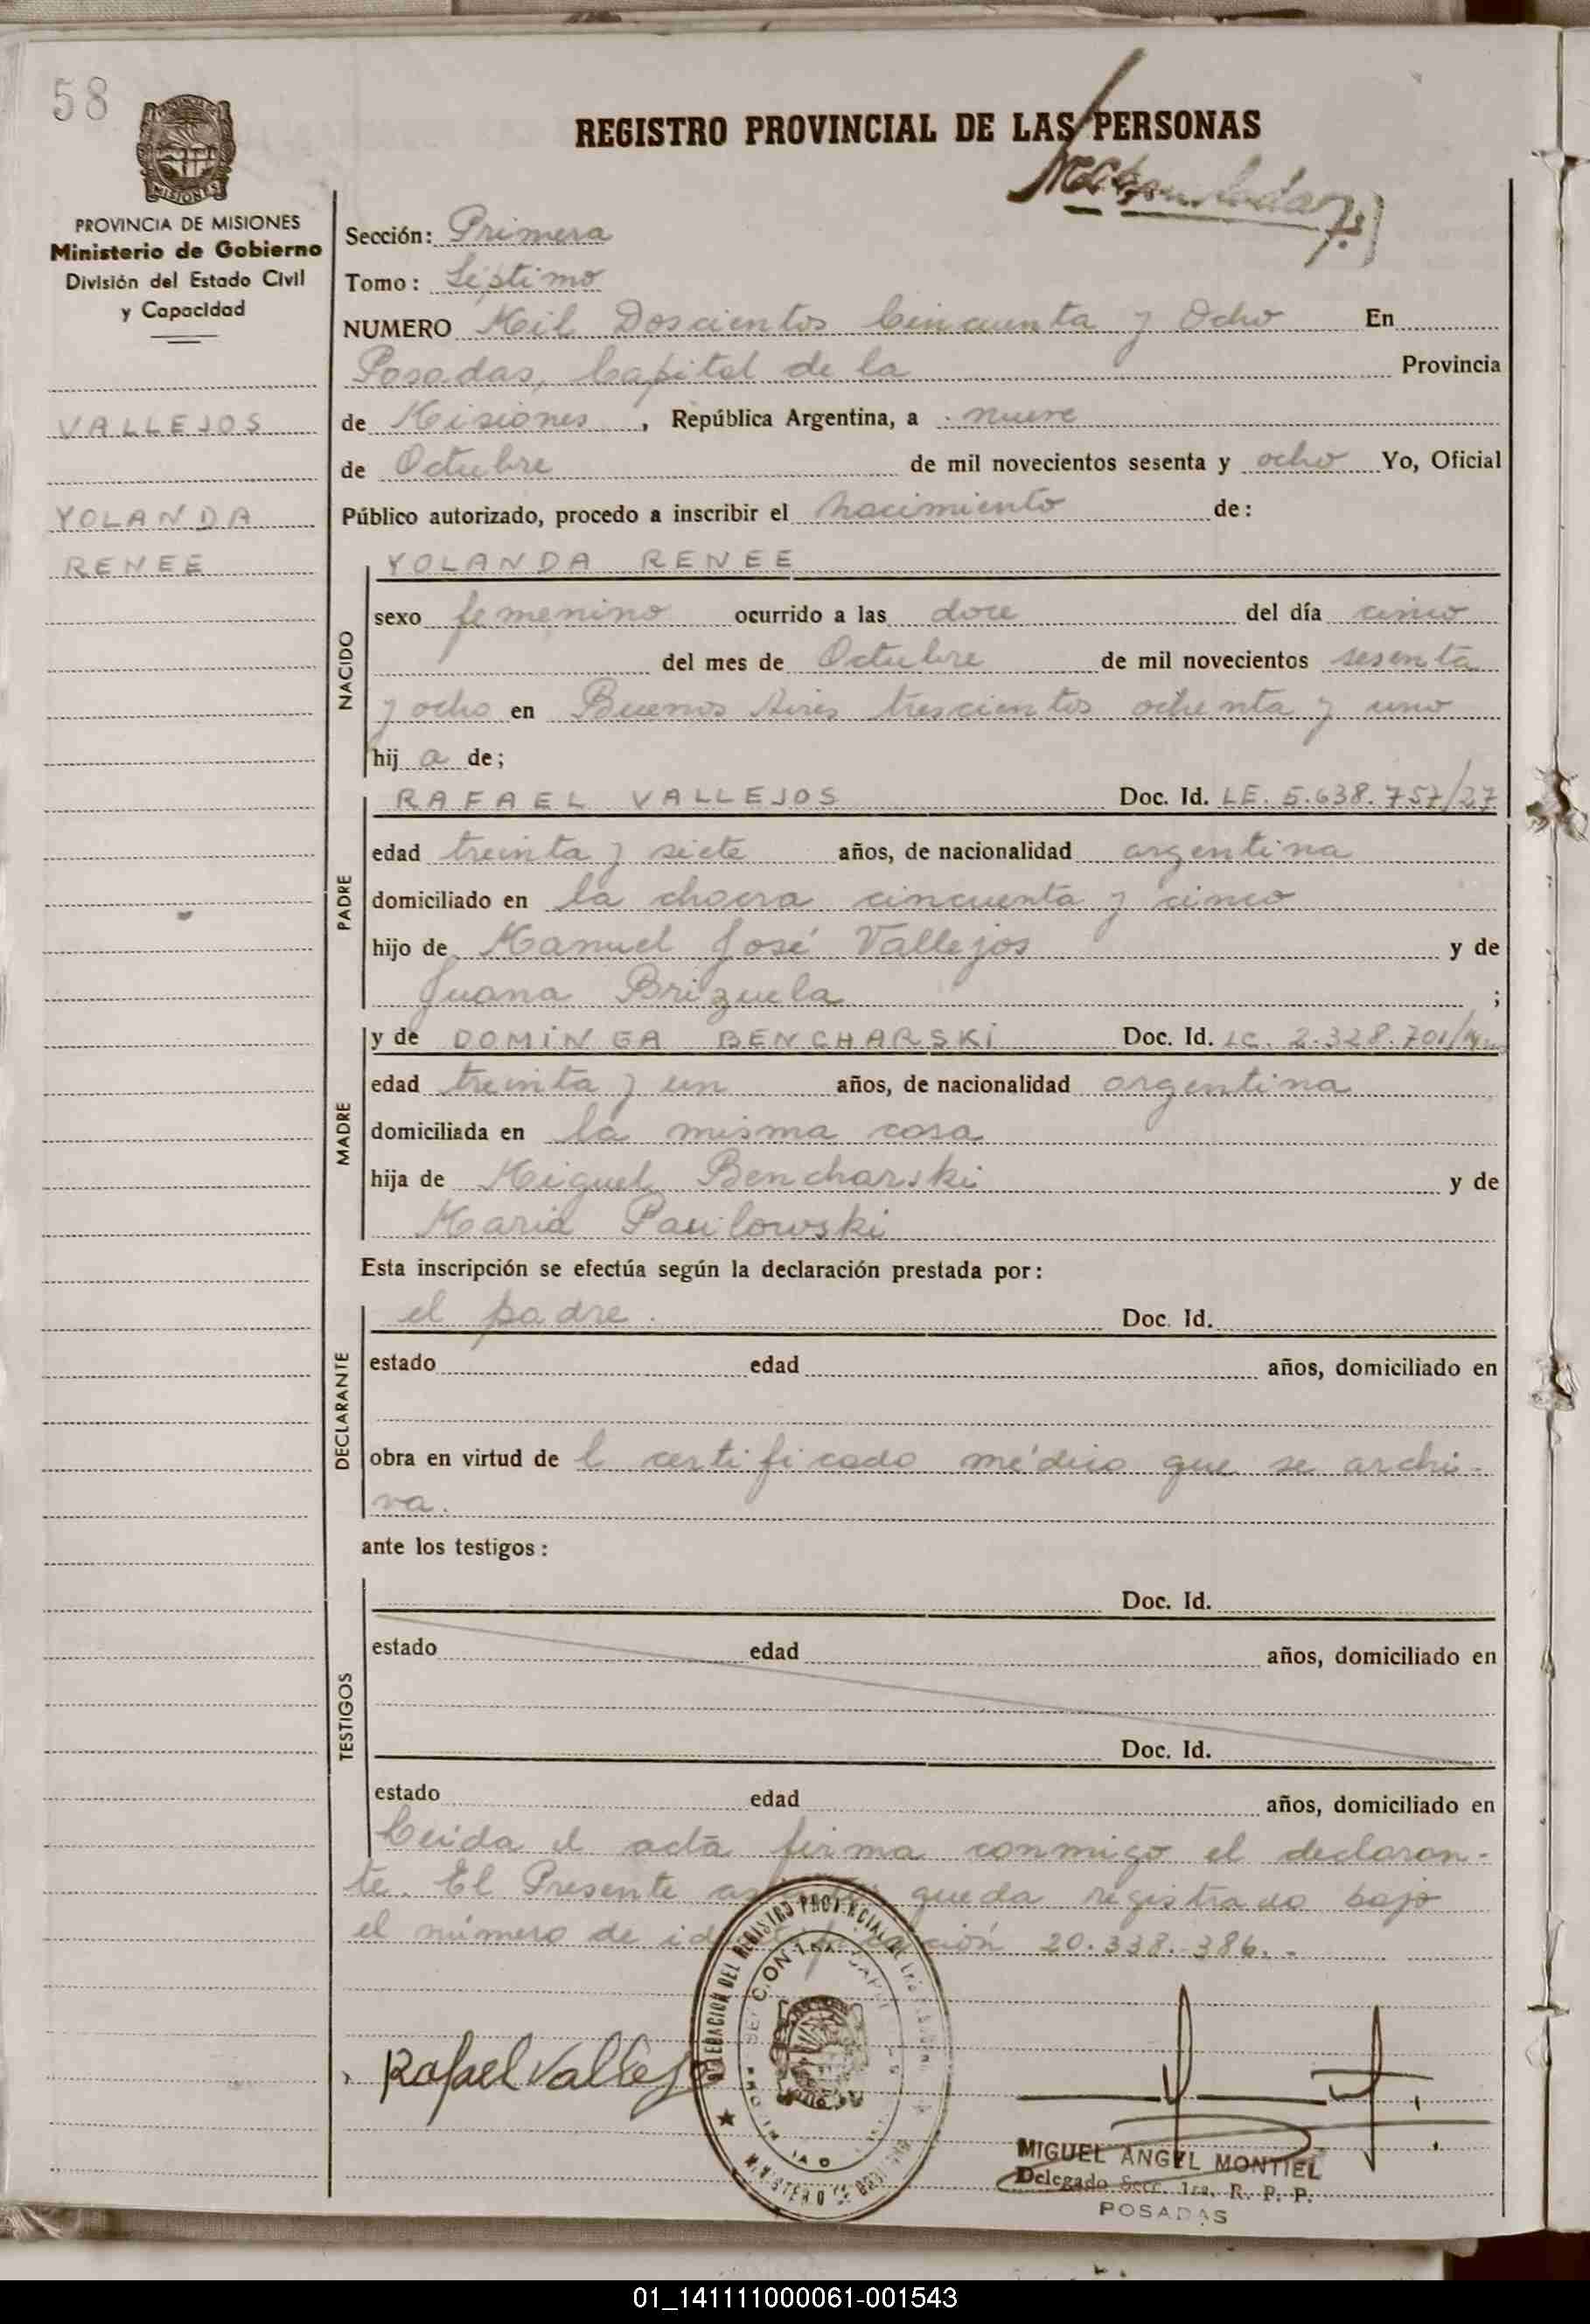 58
REGISTRO PROVINCIAL DE LAS PERSONAS
PROVINCIA DE MISIONES
Ministerio de Gobierno
División del Estado Civil
y Capacidad
VALLEJOS
YOLANDA
RENEE
Sección: Primera
Tomo: Séptimo
NUMERO Mil Doscientos Cincuenta y Ocho En
Posadas, Capital de la Provincia
de Misiones, República Argentina, a nueve
de Octubre de mil novecientos sesenta y ocho Yo, Oficial
Público autorizado, procedo a inscribir el nacimiento de:
NACIDO
YOLANDA RENEE
sexo femenino ocurrido a las doce del día cinco
del mes de Octubre de mil novecientos sesenta
y ocho en Buenos Aires trescientos ochenta y uno
hij a de;
PADRE
RAFAEL VALLEJOS Doc. Id. LE. 5.638.757/27
edad treinta y siete años, de nacionalidad argentina
domiciliado en la chacra cincuenta y cinco
hijo de Manuel José Vallejos y de
Juana Brizuela ;
MADRE
y de DOMINGA BENCHARSKI Doc. Id. LC. 2.328.701/
edad treinta y un años, de nacionalidad argentina
domiciliada en la misma casa
hija de Miguel Bencharski y de
Maria Paulowski
Esta inscripción se efectúa según la declaración prestada por:
DECLARANTE
el padre. Doc. Id.
estado edad años, domiciliado en
obra en virtud de l certificado médico que se archi-
va.
ante los testigos:
TESTIGOS
Doc. Id.
estado edad años, domiciliado en
Doc. Id.
estado edad años, domiciliado en
Leida el acta firma conmigo el declaran-
te. El Presente queda registrado bajo
el número de identificación 20.338.386.-
Rafael Vallejo
MIGUEL ANGEL MONTIEL
Delegado Secc. 1ra. R. P. P.
POSADAS
01_141111000061-001543